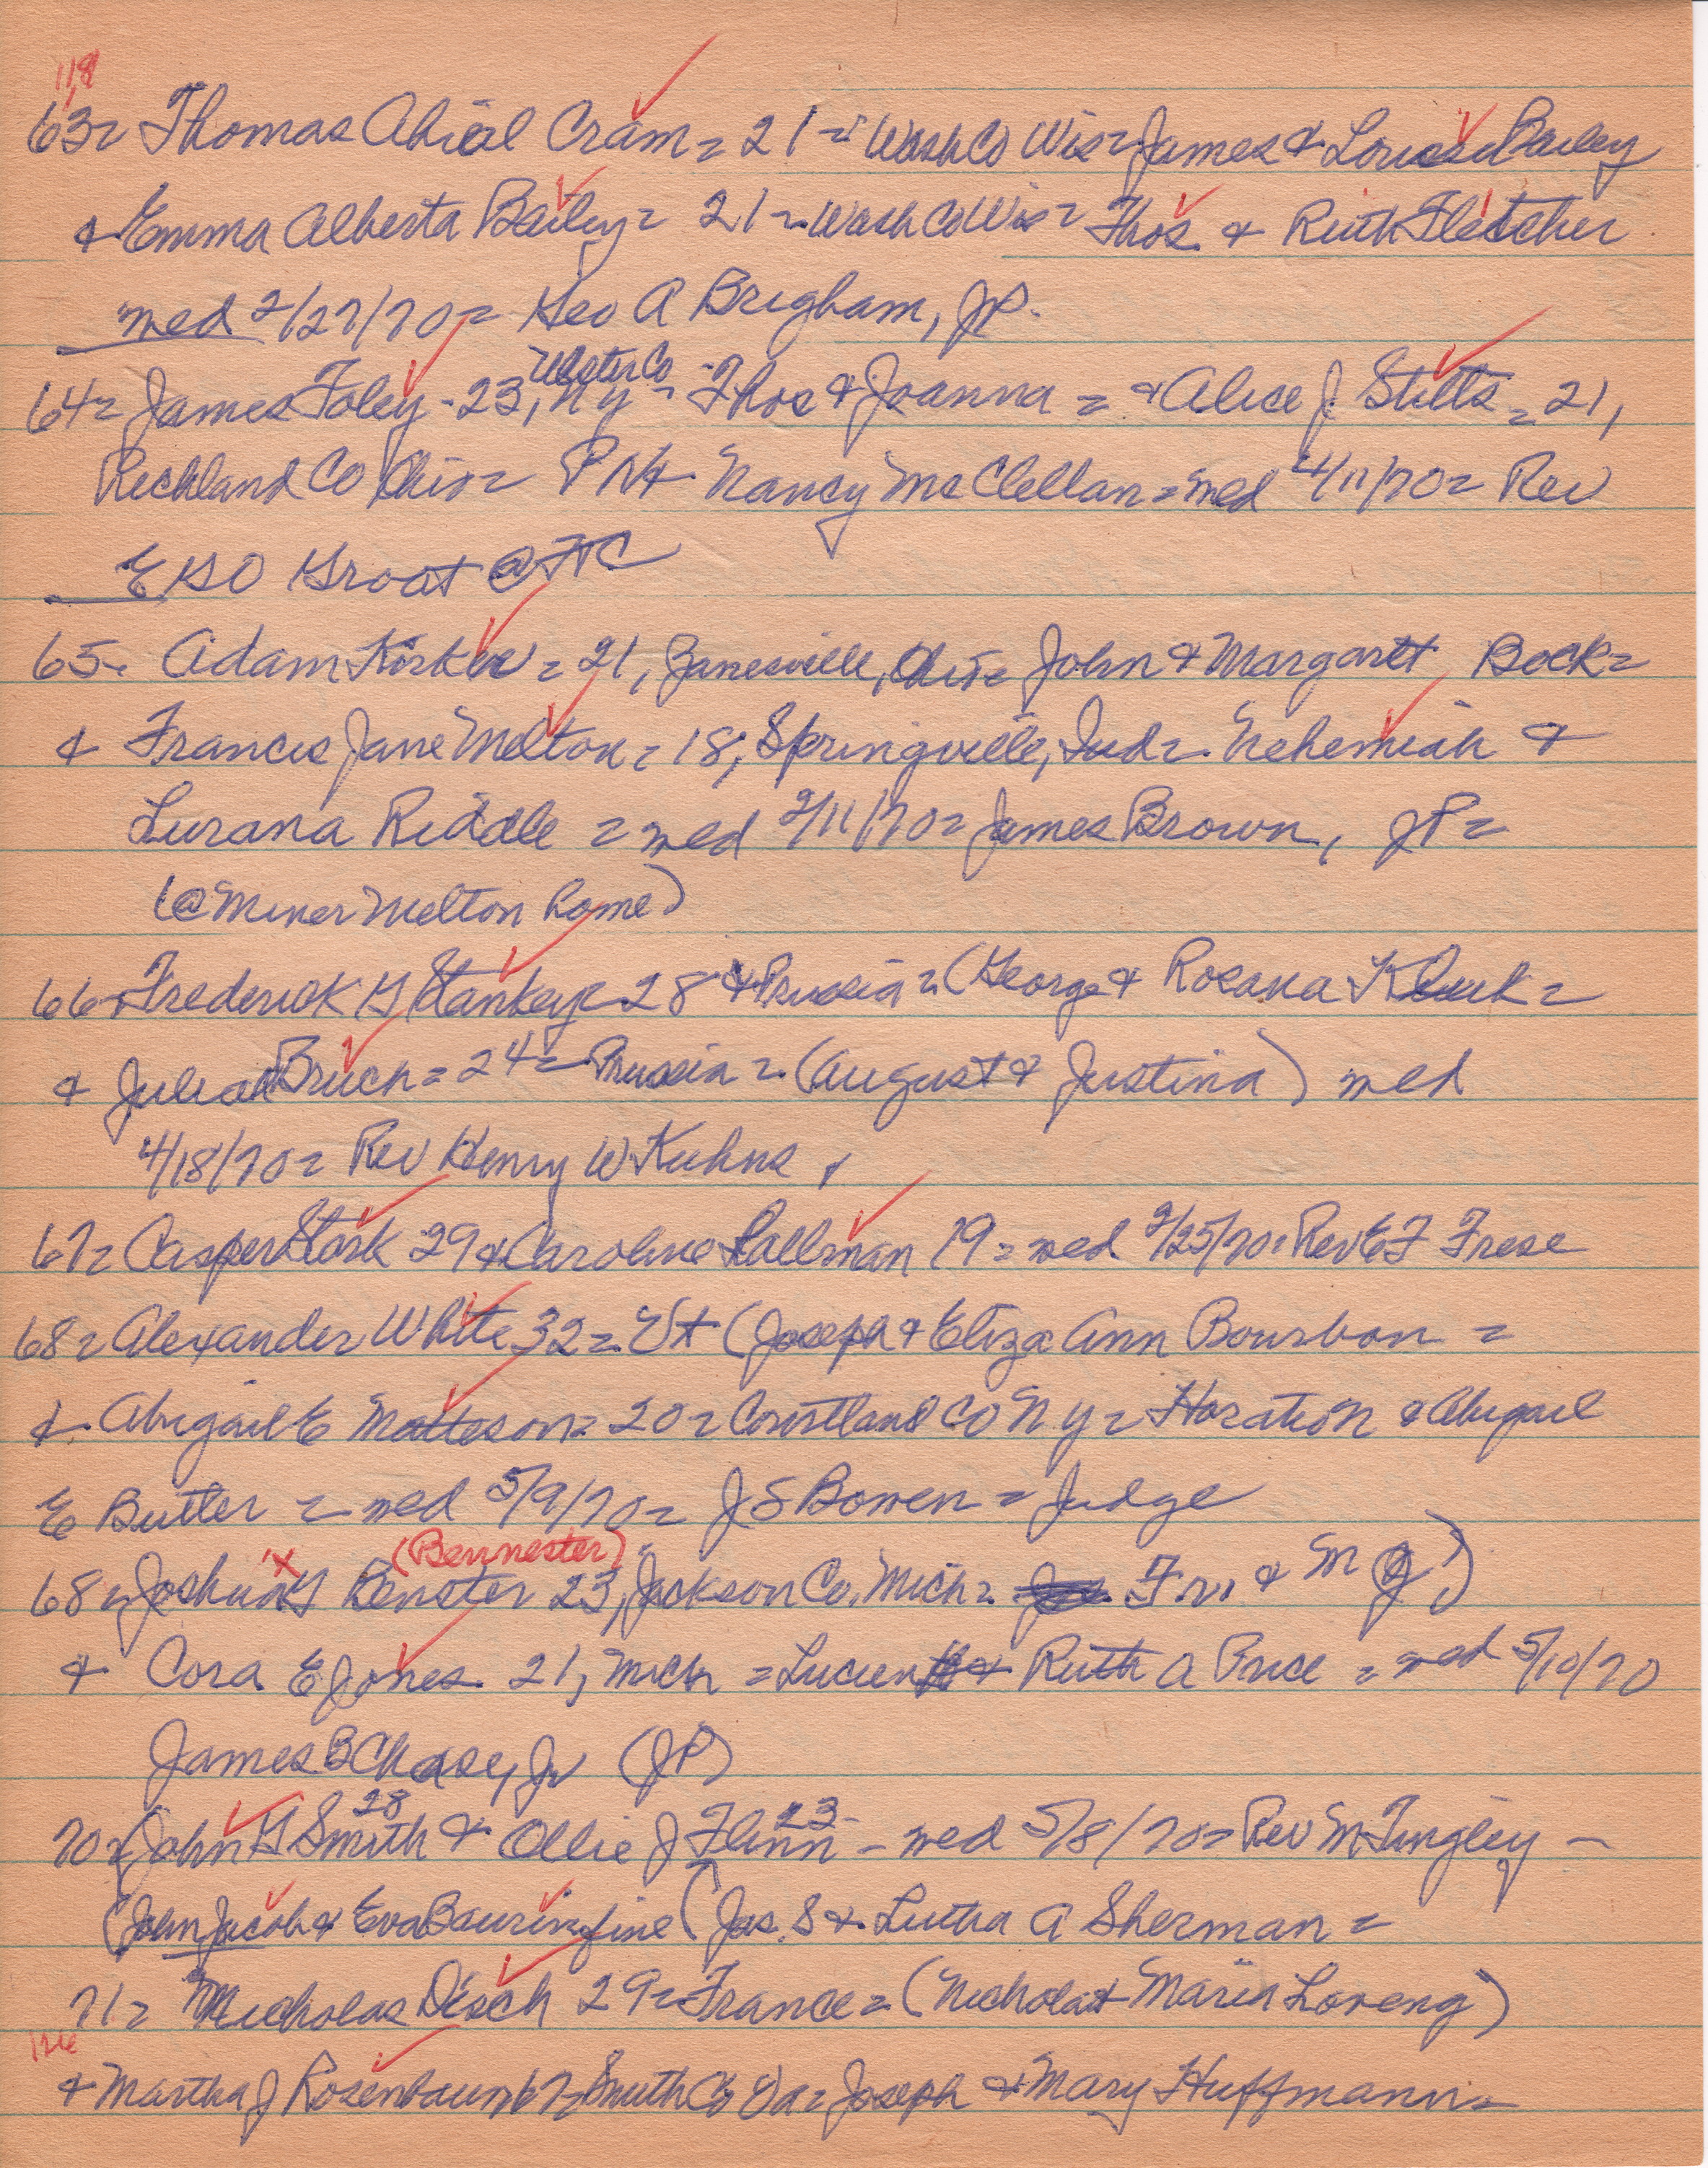 118
63= Thomas Abiel Cram = 21 = Wash Co Wis = James & Louisa Bailey
& Emma Alberta Bailey = 21 = Wash Co Wis = Thos. & Ruth Fletcher
med 2/27/70 = Geo A Brigham, JP.
64= James Foley - 23, Ulster Co NY = Thos & Joanna = & Alice J. Stilts = 21,
Richland Co Ohio = P N & Nancy McClellan = med 4/11/70 = Rev
E G O Groat @ FTC
65- Adam = 21, Zanesville, Ohio = John & Margaret Bock =
& Francis Jane Melton = 18, Springville, Ind =. Nehemiah &
Lurana Riddle = med 2/11/70 = James Brown, JP =
(@ Miner Melton home)
66= Frederick G 28 Prussia = (George & Rosana
& Bruch = 24 = Prussia = (August & Justina) med
4/18/70 = Rev Henry W Kuhns
67= Casper Stork 29 & Caroline Lallman 19 = med 2/25/70 = Rev E F Frese
68= Alexander White 32 = Vt (Joseph & Eliza Ann Bourbon =
& Abigail E Matteson = 20 = Courtland Co N Y = Horation & Abigail
E Butler = med 5/9/70 = J S Bowen = Judge
(Bennester)
68= Joshua G Benster 23, Jackson Co, Mich = & M J)
& Cora E Jones 21, Mich = Lucien & Ruth A Price = med 5/10/70
James B Chase, Jr (JP)
70= John G Smith 28 & Ollie J Flinn 23 - med 5/8/70 = Rev M Tingley -
(John Jacob & Eva (Jas. S & Lutha A Sherman =
71= Nicholas Disch 29 = France = (Nichola & Maria Loreng)
126
& Martha J Rosenbaum Smith Co Va = Joseph & Mary Huffman =